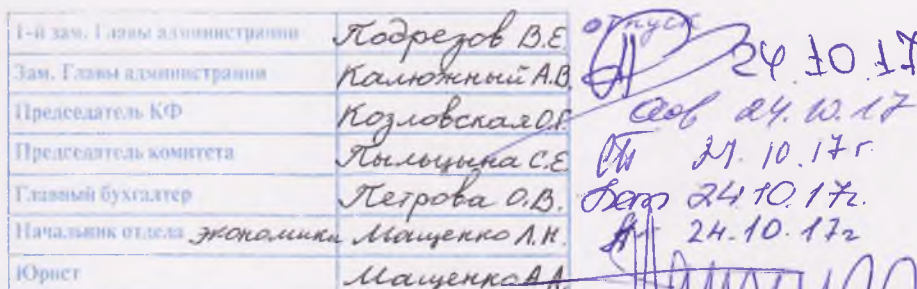 1-й зам. Главы администрации Подрезов В.Е. отпуск
Зам. Главы администрации Калюжный А.В. 24.10.17
Председатель КФ Козловская О.Г. 24.10.17
Председатель комитета Пыльцына С.Е. 24.10.17г.
Главный бухгалтер Петрова О.В. 24.10.17г.
Начальник отдела экономики Мащенко Л.Н. 24.10.17г
Юрист Мащенко А.А.